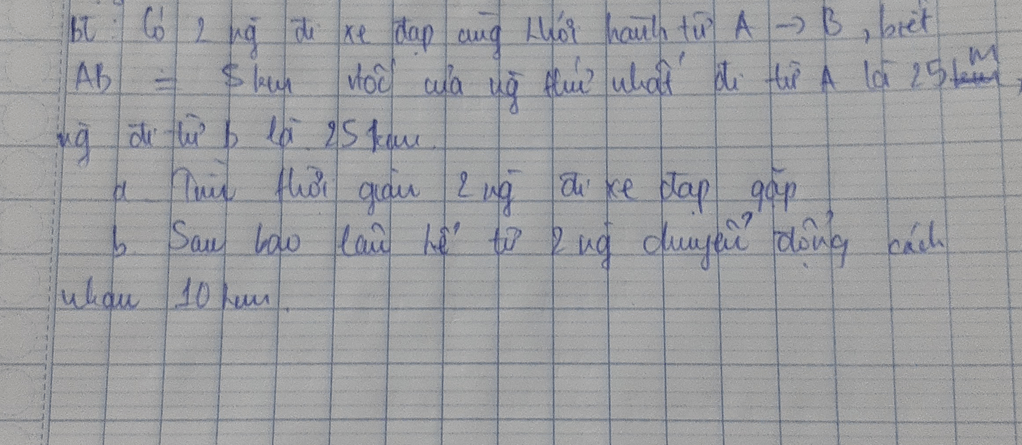 BT: Có 2 ng đi xe đạp cùg khởi hành từ A → B, biết
AB = 5 km vtốc của ng thứ nhất đi từ A là 25 m,
ng đi từ b là 25 km.
a Tìm thời gian 2 ng đi xe đạp gặp
b. Sau bao lâu kể từ 2 ng chuyển động cách
nhau 10 km.